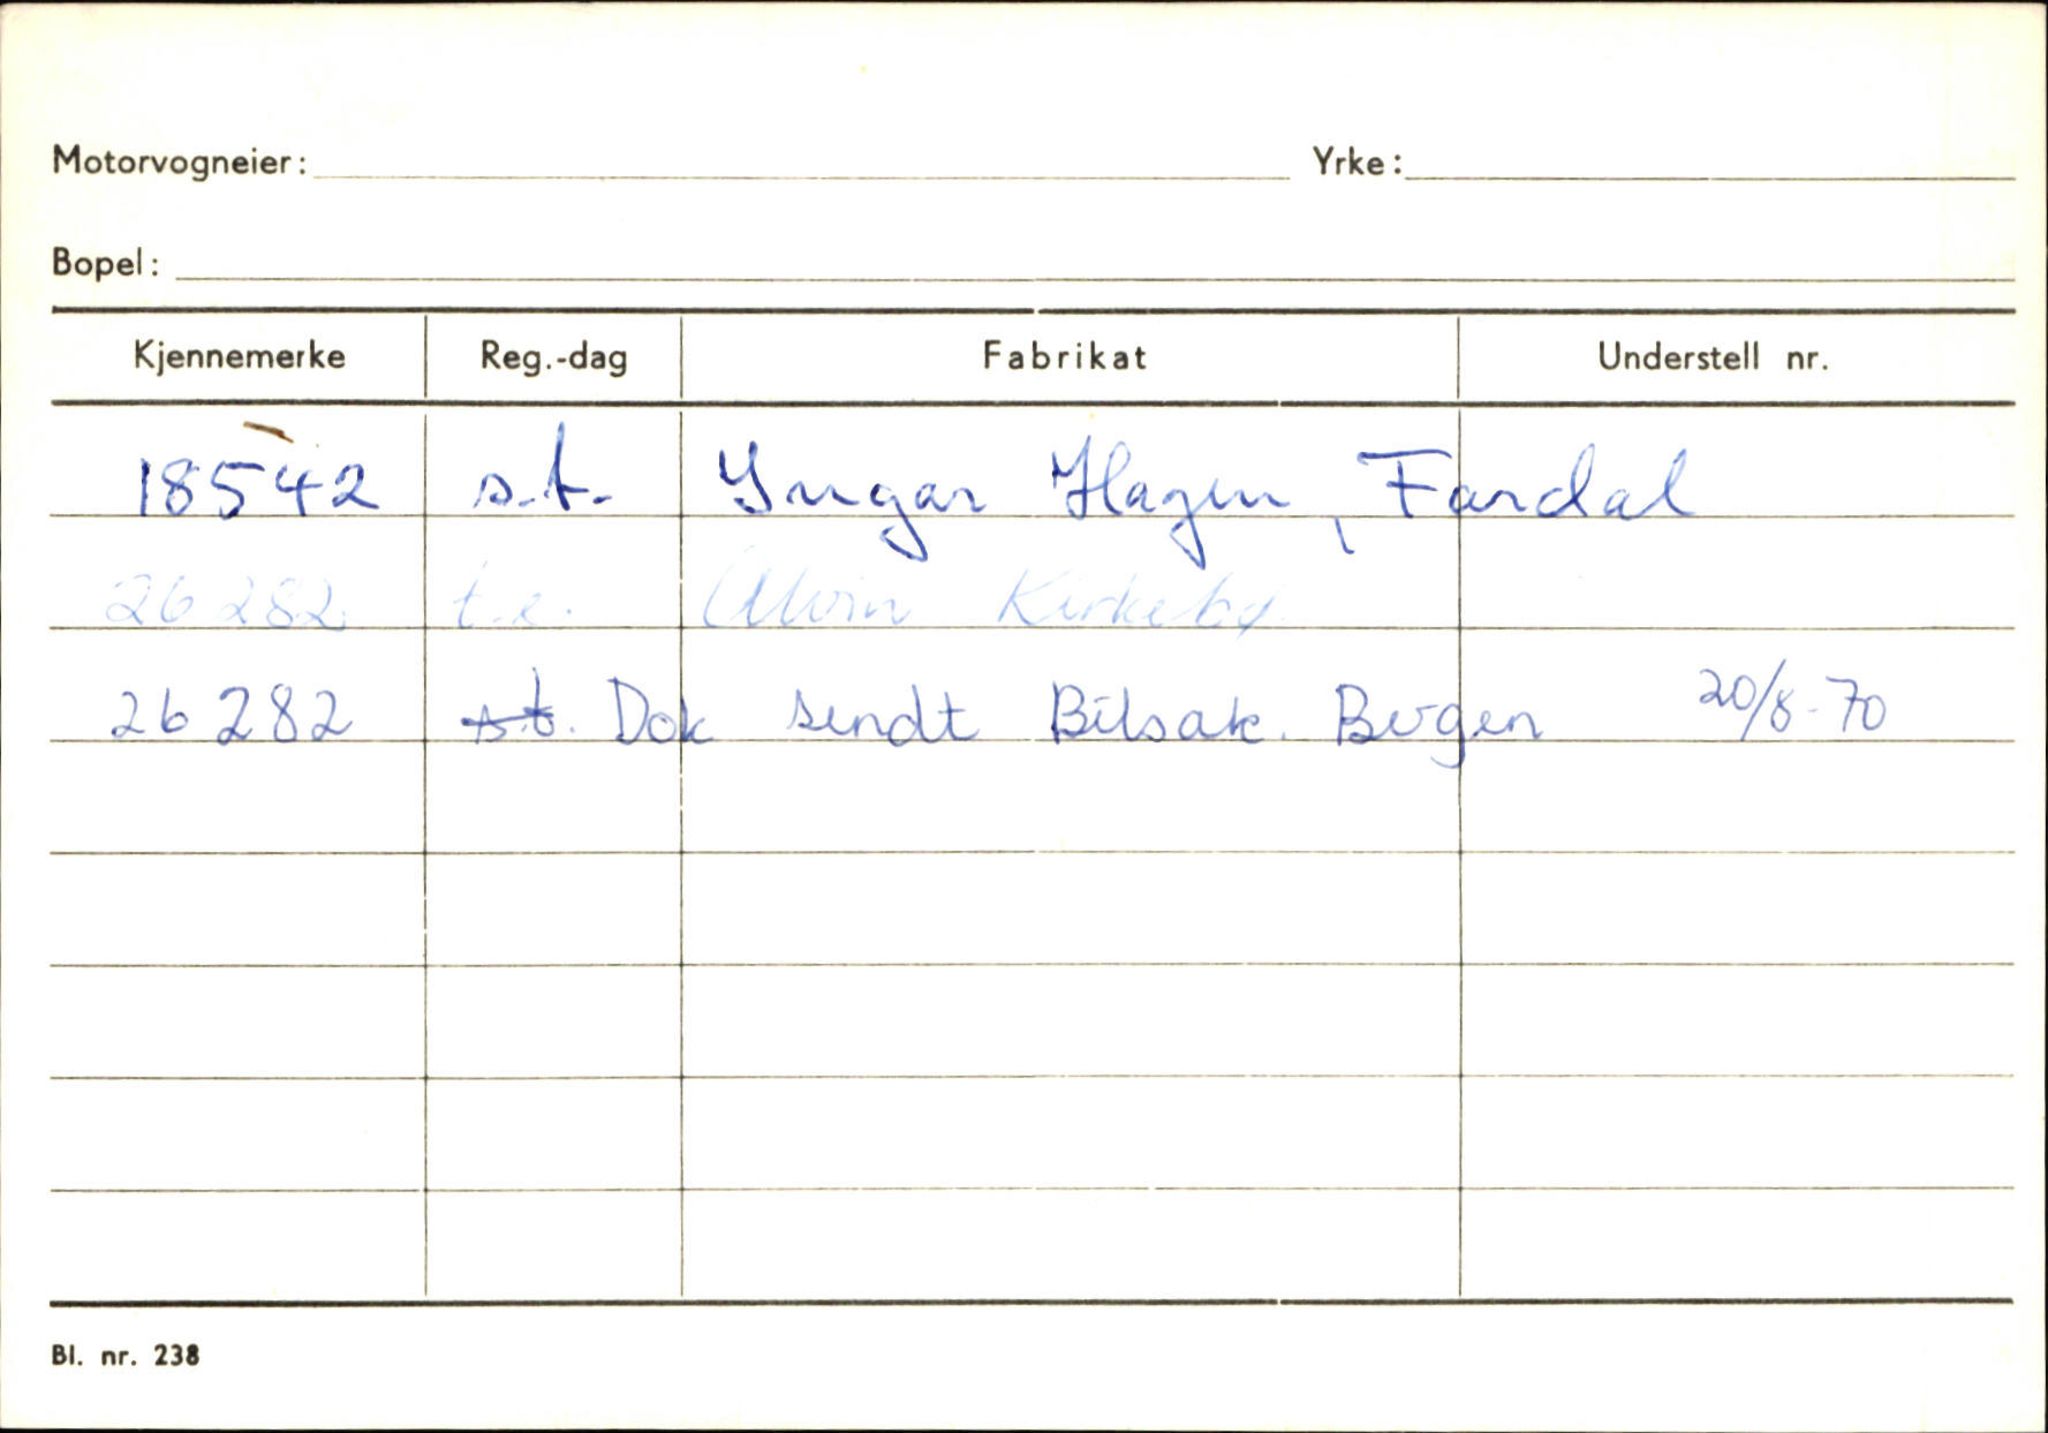 Motorvogneier: Yrke:
Bopel:
Kjennemerke Reg.-dag Fabrikat Understell nr.
18542 s.t. Ingar Hagen, Fardal
26282 t.e. Alvin Kirkeby
26282 s.t. Dok sendt Bilsak. Bergen 20/8-70
Bl. nr. 238